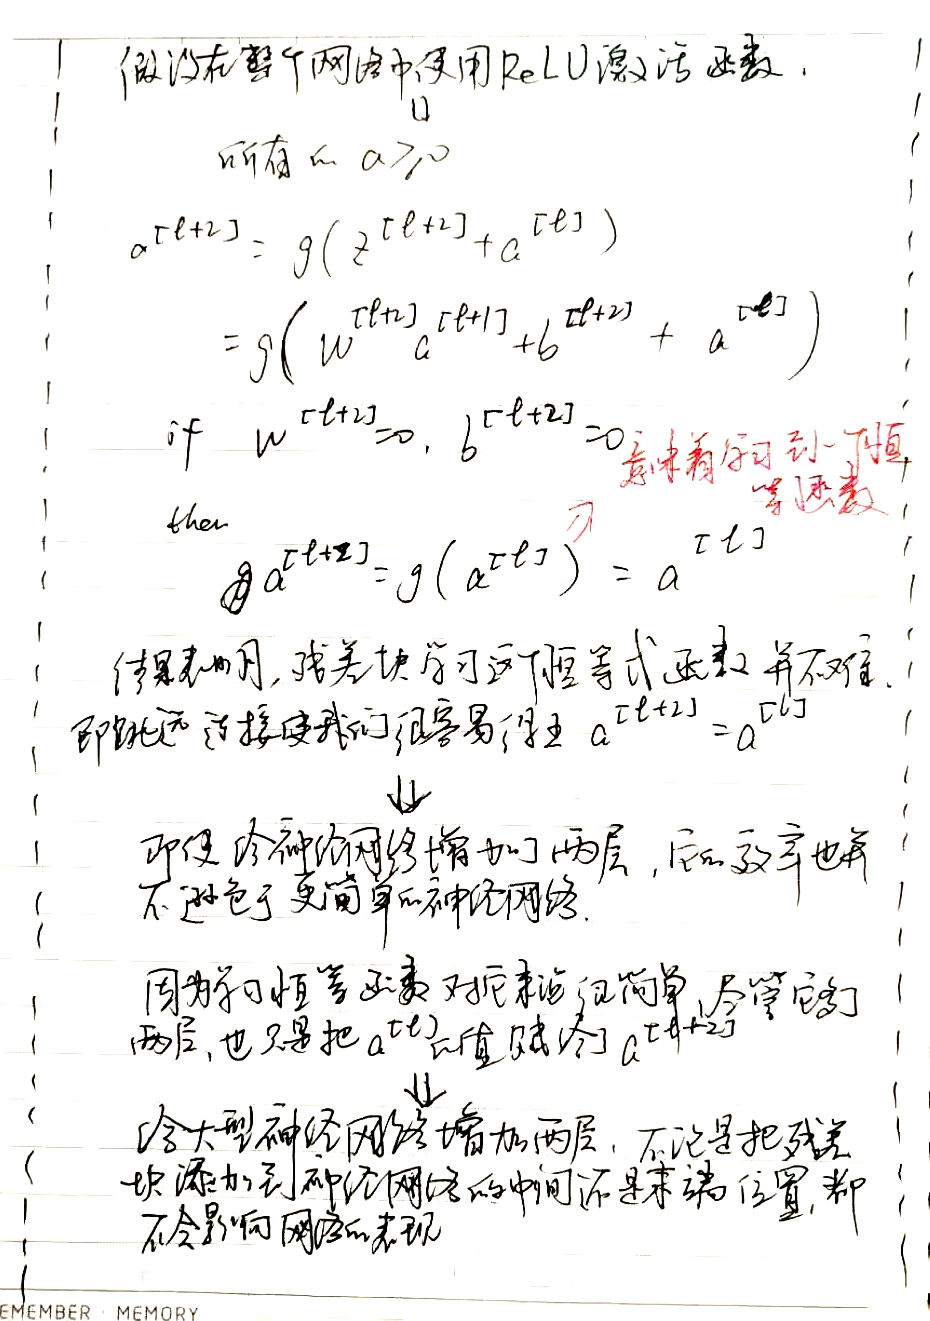 假设在整个网络中使用ReLU激活函数.
⇓
所有的 a≥0
a^[l+2] = g(z^[l+2] + a^[l])
= g(W^[l+2] a^[l+1] + b^[l+2] + a^[l])
if W^[l+2]=0, b^[l+2]=0
意味着学习到一个恒
等函数
then
a^[l+2] = g(a^[l]) = a^[l]
结果表明,残差块学习这个恒等式函数并不难.
即跳远连接使我们很容易得出 a^[l+2] = a^[l]
⇓
即使给神经网络增加了两层,它的效率也并
不逊色于更简单的神经网络.
因为学习恒等函数对它来说很简单,尽管它多了
两层,也只是把a^[l]的值赋给了a^[l+2]
⇓
给大型神经网络增加两层,不论是把残差
块添加到神经网络的中间还是末端位置,都
不会影响网络的表现
EMEMBER · MEMORY